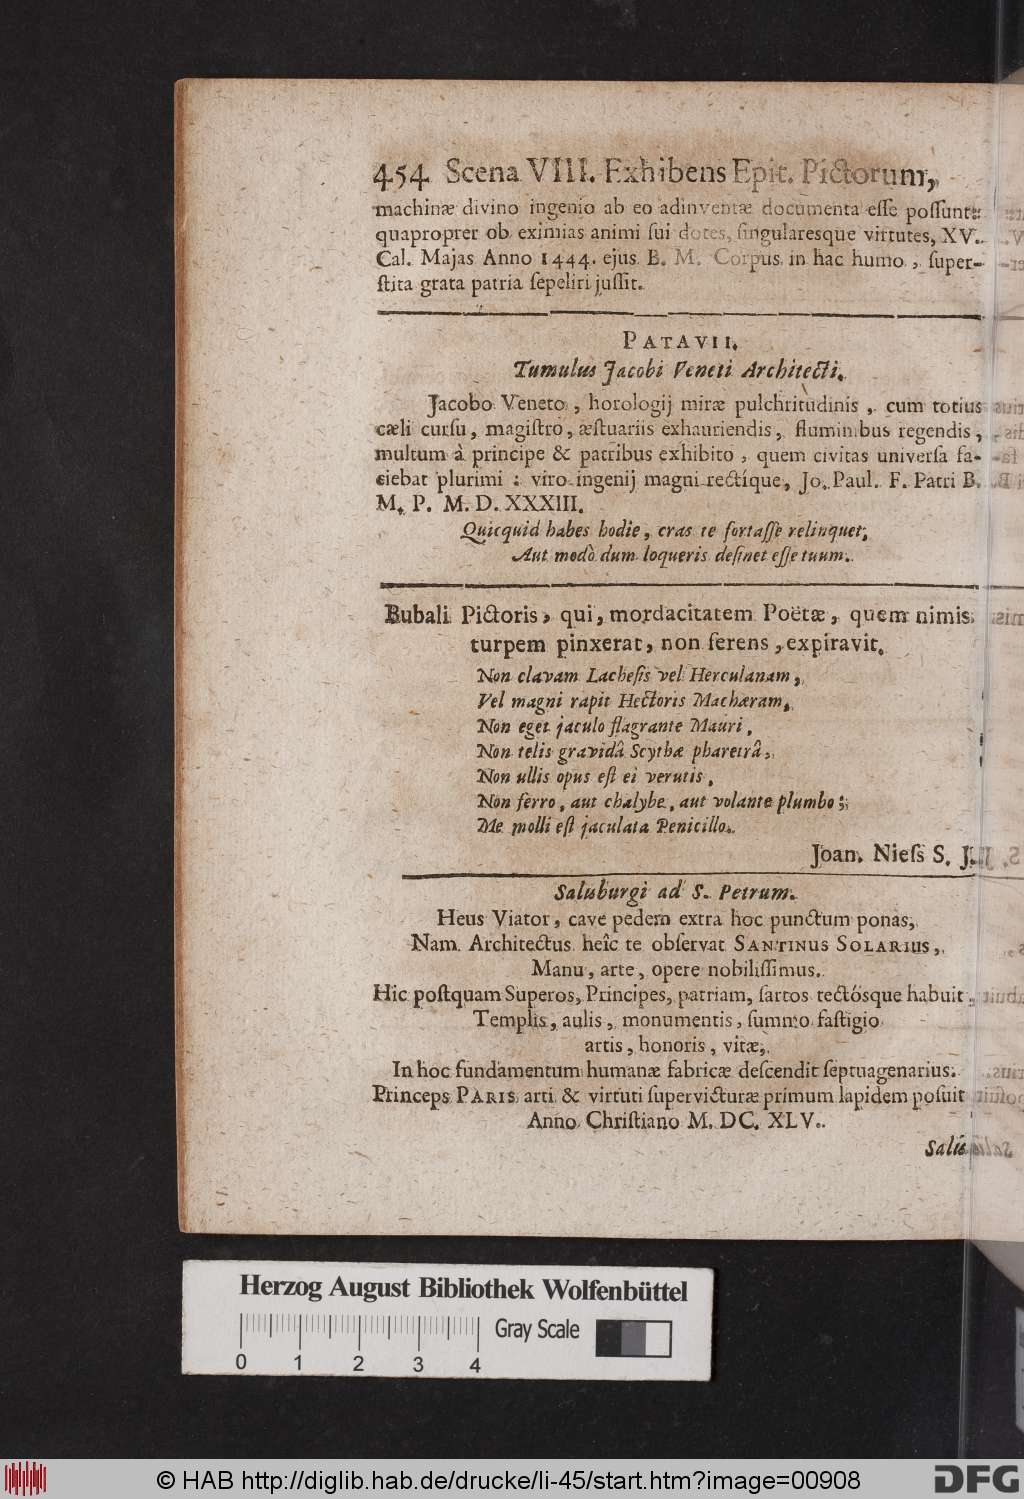 454 Scena VIII. Exhibens Epit. Pictorum,
machinæ divino ingenio ab eo adinventæ documenta eſſe poſſunt:
quaproprer ob eximias animi ſui dotes, ſingularesque virtutes, XV.
Cal. Majas Anno 1444. ejus B. M. Corpus in hac humo, ſuper-
ſtita grata patria ſepeliri juſſit.
PATAVII.
Tumulus Jacobi Veneti Architecti.
Jacobo Veneto, horologij miræ pulchritudinis, cum totius
cæli curſu, magiſtro, æſtuariis exhauriendis, fluminibus regendis,
multum à principe & patribus exhibito, quem civitas univerſa fa-
ciebat plurimi: viro ingenij magni rectíque, Jo. Paul. F. Patri B.
M. P. M. D. XXXIII.
Quicquid habes hodie, cras te fortaſſe relinquet,
Aut modò dum loqueris deſinet eſſe tuum.
Bubali Pictoris, qui, mordacitatem Poëtæ, quem nimis
turpem pinxerat, non ferens, expiravit.
Non clavam Lacheſis vel Herculanam,
Vel magni rapit Hectoris Machæram,
Non eget jaculo flagrante Mauri,
Non telis gravidâ Scythæ pharetrâ,
Non ullis opus eſt ei verutis,
Non ferro, aut chalybe, aut volante plumbo;
Me molli eſt jaculata Penicillo.
Joan. Nieſs S. J.
Salisburgi ad S. Petrum.
Heus Viator, cave pedem extra hoc punctum ponas,
Nam Architectus heîc te obſervat SANTINUS SOLARIUS,
Manu, arte, opere nobiliſſimus.
Hic poſtquam Superos, Principes, patriam, ſartos tectósque habuit
Templis, aulis, monumentis, ſummo faſtigio
artis, honoris, vitæ,
In hoc fundamentum humanæ fabricæ deſcendit ſeptuagenarius.
Princeps PARIS arti & virtuti ſupervicturæ primum lapidem poſuit
Anno Chriſtiano M. DC. XLV.
Salis
Herzog August Bibliothek Wolfenbüttel
Gray Scale
0 1 2 3 4
© HAB http://diglib.hab.de/drucke/li-45/start.htm?image=00908
DFG